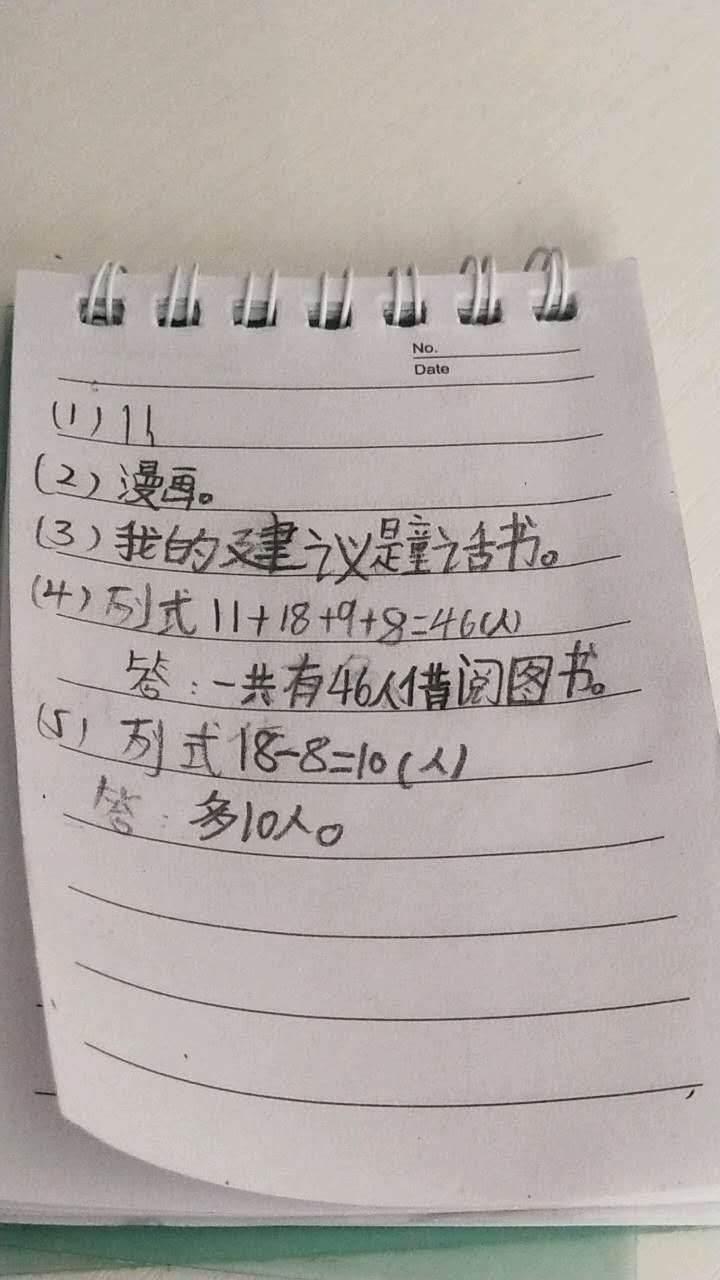 No.
Date
(1) 11
(2) 漫画。
(3) 我的建议是童话书。
(4) 列式 11+18+9+8=46(人)
答:一共有46人借阅图书。
(5) 列式 18-8=10(人)
答:多10人。